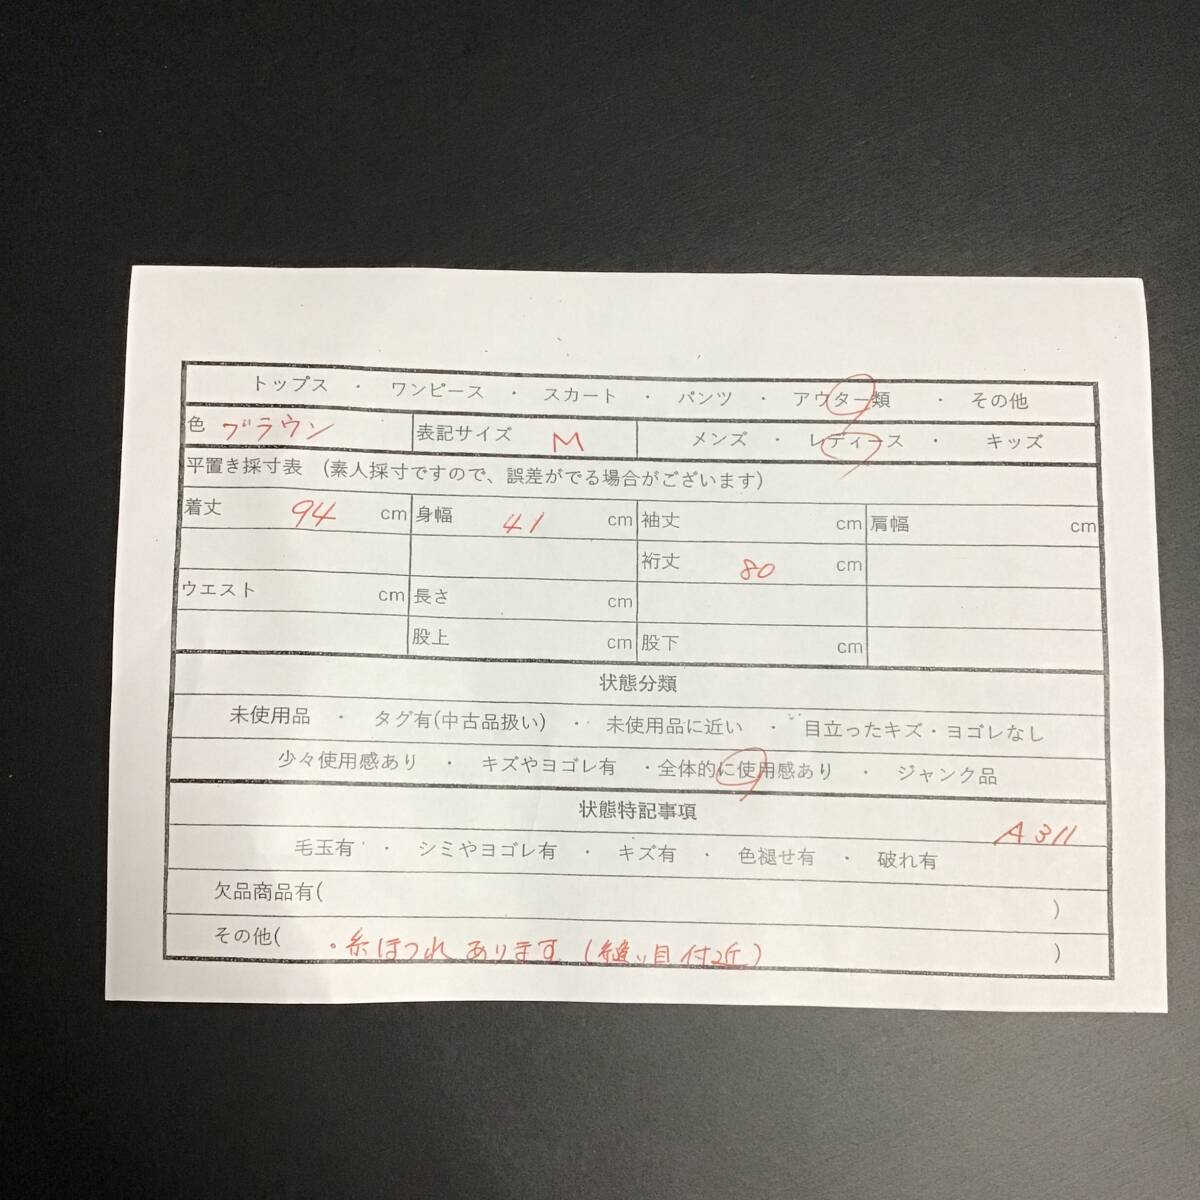 トップス ・ ワンピース ・ スカート ・ パンツ ・ アウター類 ・ その他
色 ブラウン 表記サイズ M メンズ ・ レディース ・ キッズ
平置き採寸表 (素人採寸ですので、誤差がでる場合がございます)
着丈 94 cm 身幅 41 cm 袖丈 cm 肩幅 cm
裄丈 80 cm
ウエスト cm 長さ cm
股上 cm 股下 cm
状態分類
未使用品 ・ タグ有(中古品扱い) ・ 未使用品に近い ・ 目立ったキズ・ヨゴレなし
少々使用感あり ・ キズやヨゴレ有 ・全体的に使用感あり ・ ジャンク品
状態特記事項
A311
毛玉有 ・ シミやヨゴレ有 ・ キズ有 ・ 色褪せ有 ・ 破れ有
欠品商品有( )
その他( ・糸ほつれあります(縫い目付近) )